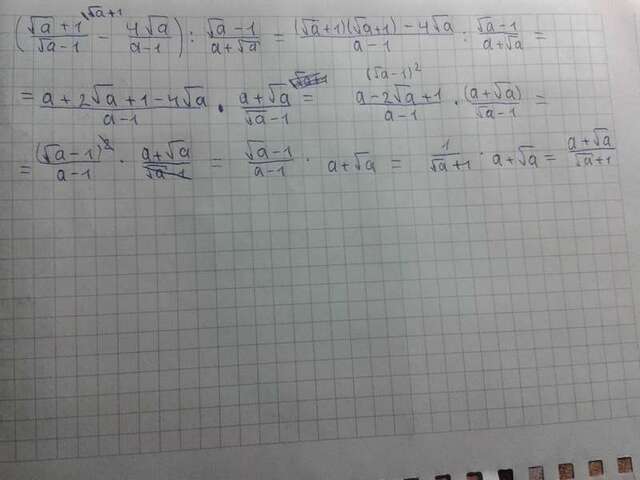 (√a + 1 / √a - 1 ^√a+1 - 4√a / a - 1) : √a - 1 / a + √a = (√a + 1)(√a + 1) - 4√a / a - 1 : √a - 1 / a + √a =
= a + 2√a + 1 - 4√a / a - 1 · a + √a / √a - 1 = (√a - 1)² a - 2√a + 1 / a - 1 · (a + √a) / √a - 1 =
= (√a - 1)² / a - 1 · a + √a / √a - 1 = √a - 1 / a - 1 · a + √a = 1 / √a + 1 · a + √a = a + √a / √a + 1